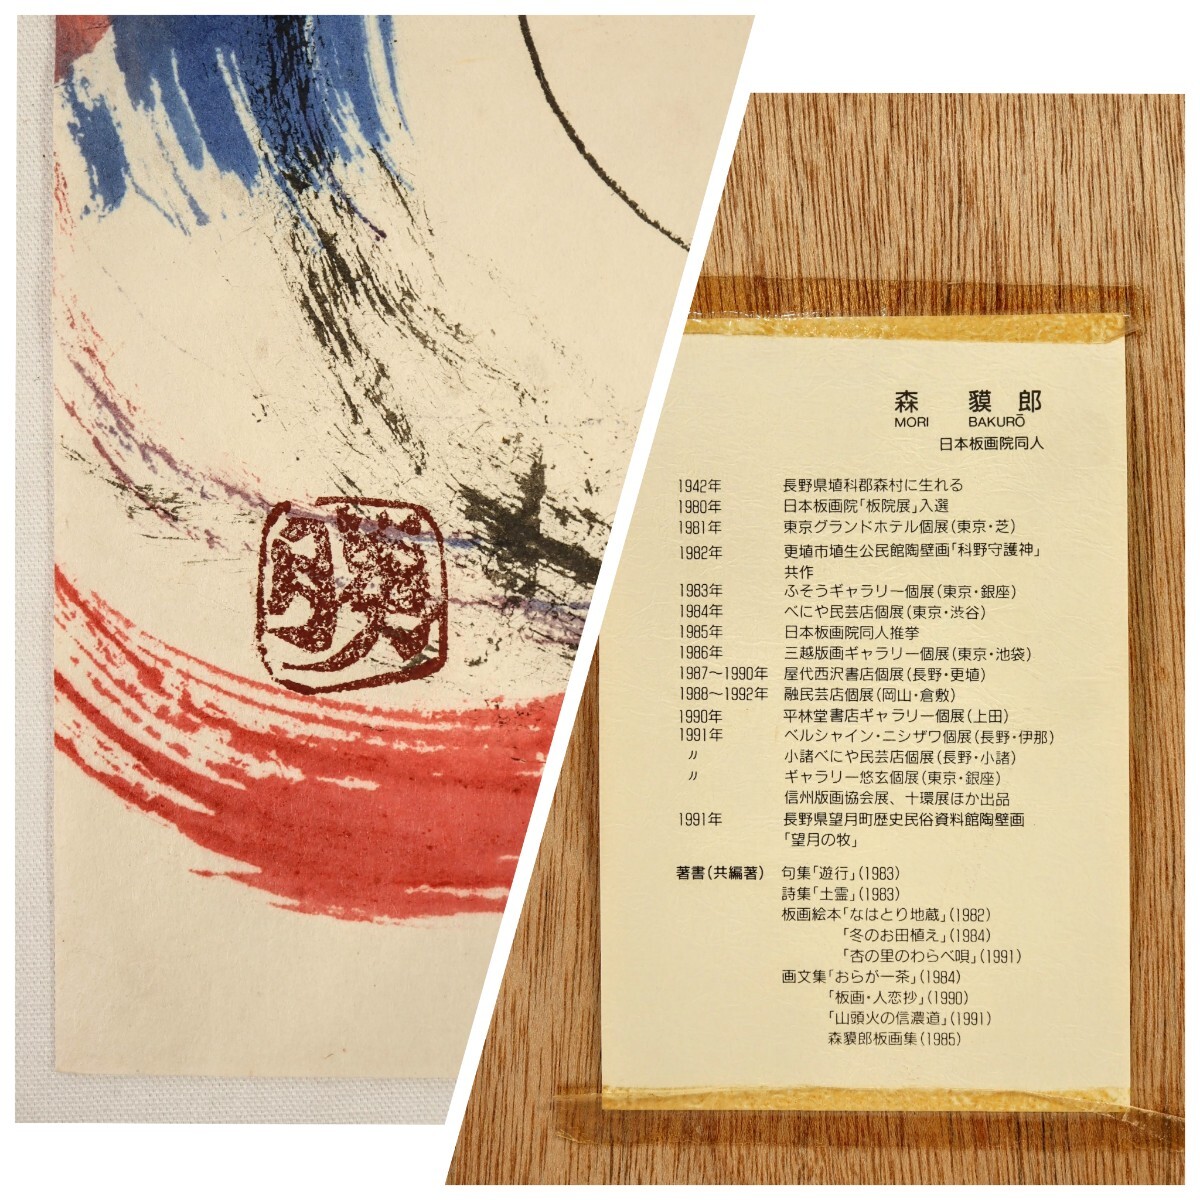 森 貘郎
MORI BAKURŌ
日本板画院同人
1942年 長野県埴科郡森村に生れる
1980年 日本板画院「板院展」入選
1981年 東京グランドホテル個展(東京・芝)
1982年 更埴市埴生公民館陶壁画「科野守護神」
共作
1983年 ふそうギャラリー個展(東京・銀座)
1984年 べにや民芸店個展(東京・渋谷)
1985年 日本板画院同人推挙
1986年 三越版画ギャラリー個展(東京・池袋)
1987〜1990年 屋代西沢書店個展(長野・更埴)
1988〜1992年 融民芸店個展(岡山・倉敷)
1990年 平林堂書店ギャラリー個展(上田)
1991年 ベルシャイン・ニシザワ個展(長野・伊那)
〃 小諸べにや民芸店個展(長野・小諸)
〃 ギャラリー悠玄個展(東京・銀座)
信州版画協会展、十環展ほか出品
1991年 長野県望月町歴史民俗資料館陶壁画
「望月の牧」
著書(共編著) 句集「遊行」(1983)
詩集「土霊」(1983)
板画絵本「なはとり地蔵」(1982)
「冬のお田植え」(1984)
「杏の里のわらべ唄」(1991)
画文集「おらが一茶」(1984)
「板画・人恋抄」(1990)
「山頭火の信濃道」(1991)
森貘郎板画集(1985)